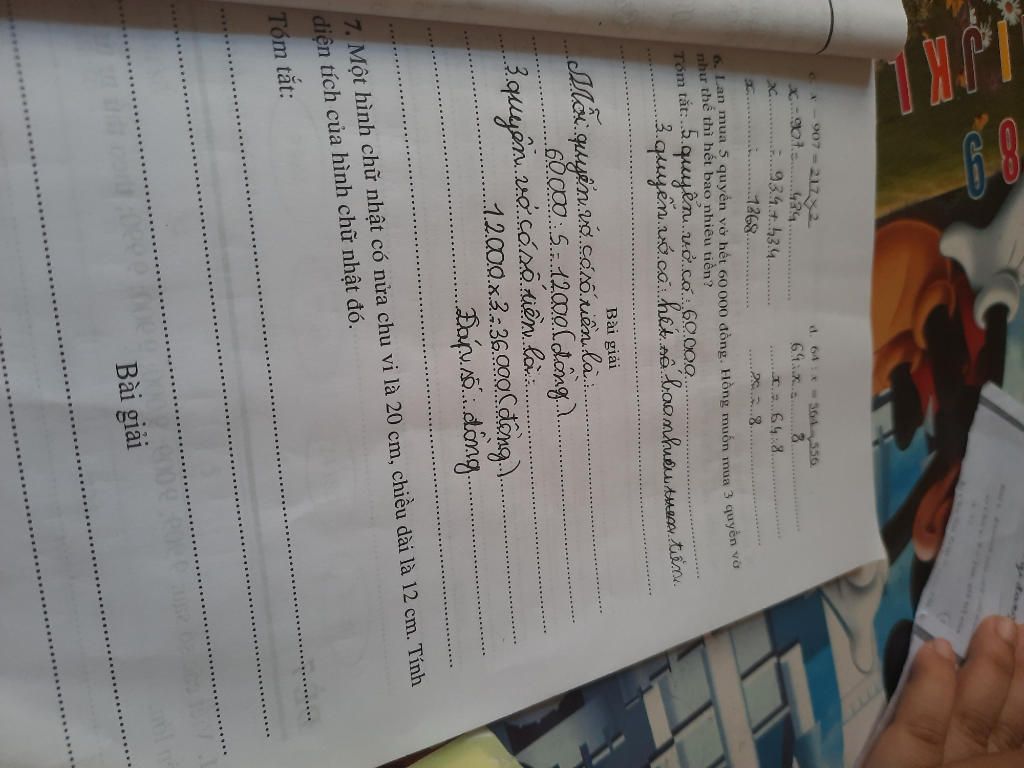 c. x – 907 = 217 x 2
x – 907 = 434
x = 934 + 434
x = 1368
d. 64 : x = 564 – 556
64 : x = 8
x = 64 : 8
x = 8
6. Lan mua 5 quyển vở hết 60 000 đồng. Hồng muốn mua 3 quyển vở
như thế thì hết bao nhiêu tiền?
Tóm tắt: 5 quyển vở có: 60.000
3 quyển vở có: hết số bao nhiêu tiền
Bài giải
Mỗi quyển vở có số tiền là:
60 000 : 5 = 12000 (đồng)
3 quyển vở có số tiền là:
12000 x 3 = 36000 (đồng)
Đáp số: đồng
7. Một hình chữ nhật có nửa chu vi là 20 cm, chiều dài là 12 cm. Tính
diện tích của hình chữ nhật đó.
Tóm tắt:
Bài giải
I J K L
6 8